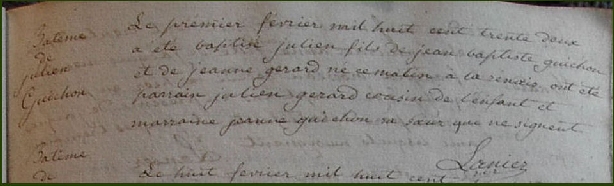 Batême
de
julien
Guichon
Le premier fevrier mil huit cent trente deux
a été baptisé julien fils de jean baptiste guichon
et de jeanne gerard né ce matin a la ont été
parrain julien gerard cousin de l'enfant et
marraine jeanne guichon sa sœur que ne signent
Batême
de
Le huit fevrier mil huit cent